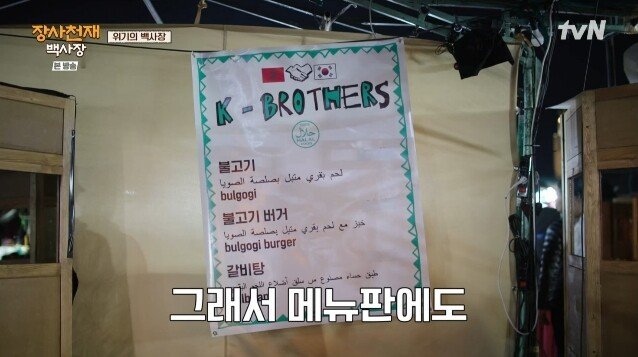 장사천재
백사장
본 방송
위기의 백사장
tvN
K - BROTHERS
HALAL
불고기
لحم بقري متبل بصلصة الصويا
bulgogi
불고기 버거
خبز مع لحم بقري متبل بصلصة الصويا
bulgogi burger
갈비탕
طبق حساء مصنوع من سلق أضلاع
그래서 메뉴판에도